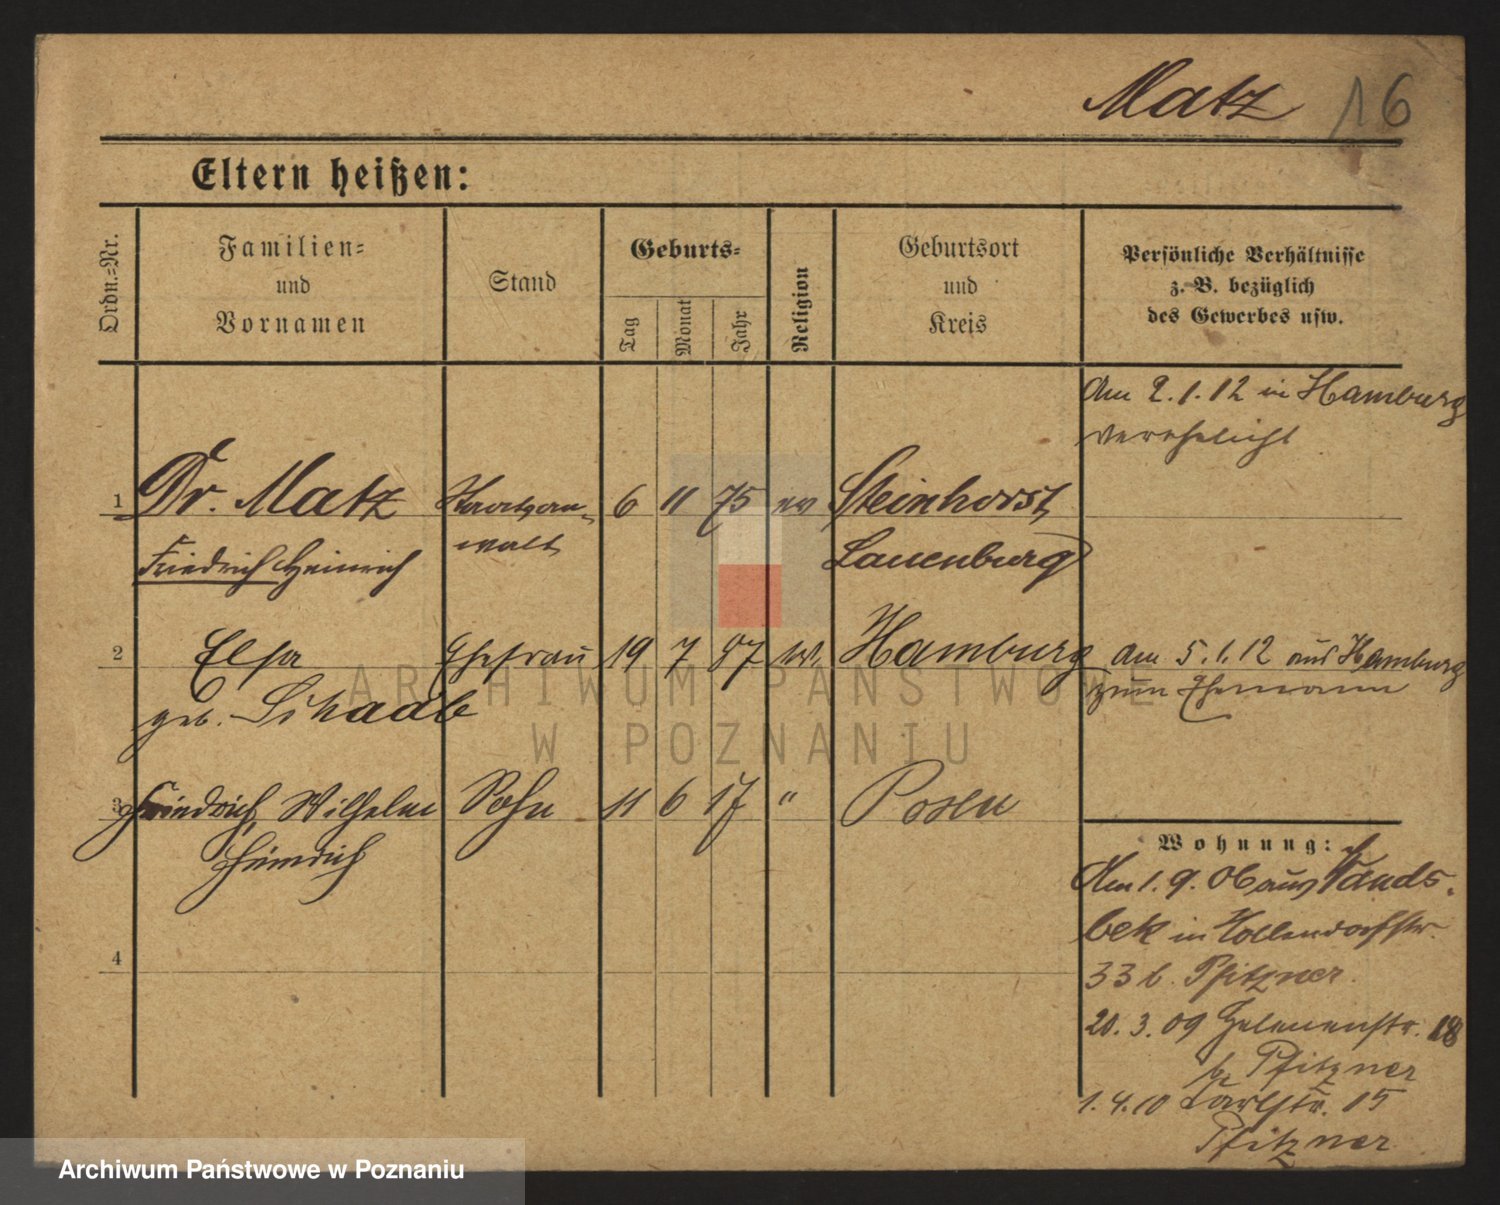 Matz 16
Eltern heißen:
Ordn.-Nr.
Familien-
und
Vornamen
Stand
Geburts-
Tag
Monat
Jahr
Religion
Geburtsort
und
Kreis
Persönliche Verhältnisse
z. B. bezüglich
des Gewerbes usw.
Am 2.1.12 in Hamburg
verehelicht
1 Dr. Matz Staatsan- 6 11 75 ev Steinhorst,
Friedrich Heinrich walt Lauenburg
2 Elsa Ehefrau 19 7 87 ev. Hamburg am 5.1.12 aus Hamburg
geb. Schaab zum Ehemann
3 Friedrich, Wilhelm Sohn 11 6 17 " Posen
Heinrich
4
Wohnung:
Am 1.9.06 aus Wands-
bek in Hollendorfstr.
33 b. Pfitzner.
20.3.09 Helenenstr. 18
b. Pfitzner
1.4.10 Carlstr. 15
Pfitzner
ARCHIWUM PAŃSTWOWE
W POZNANIU
Archiwum Państwowe w Poznaniu